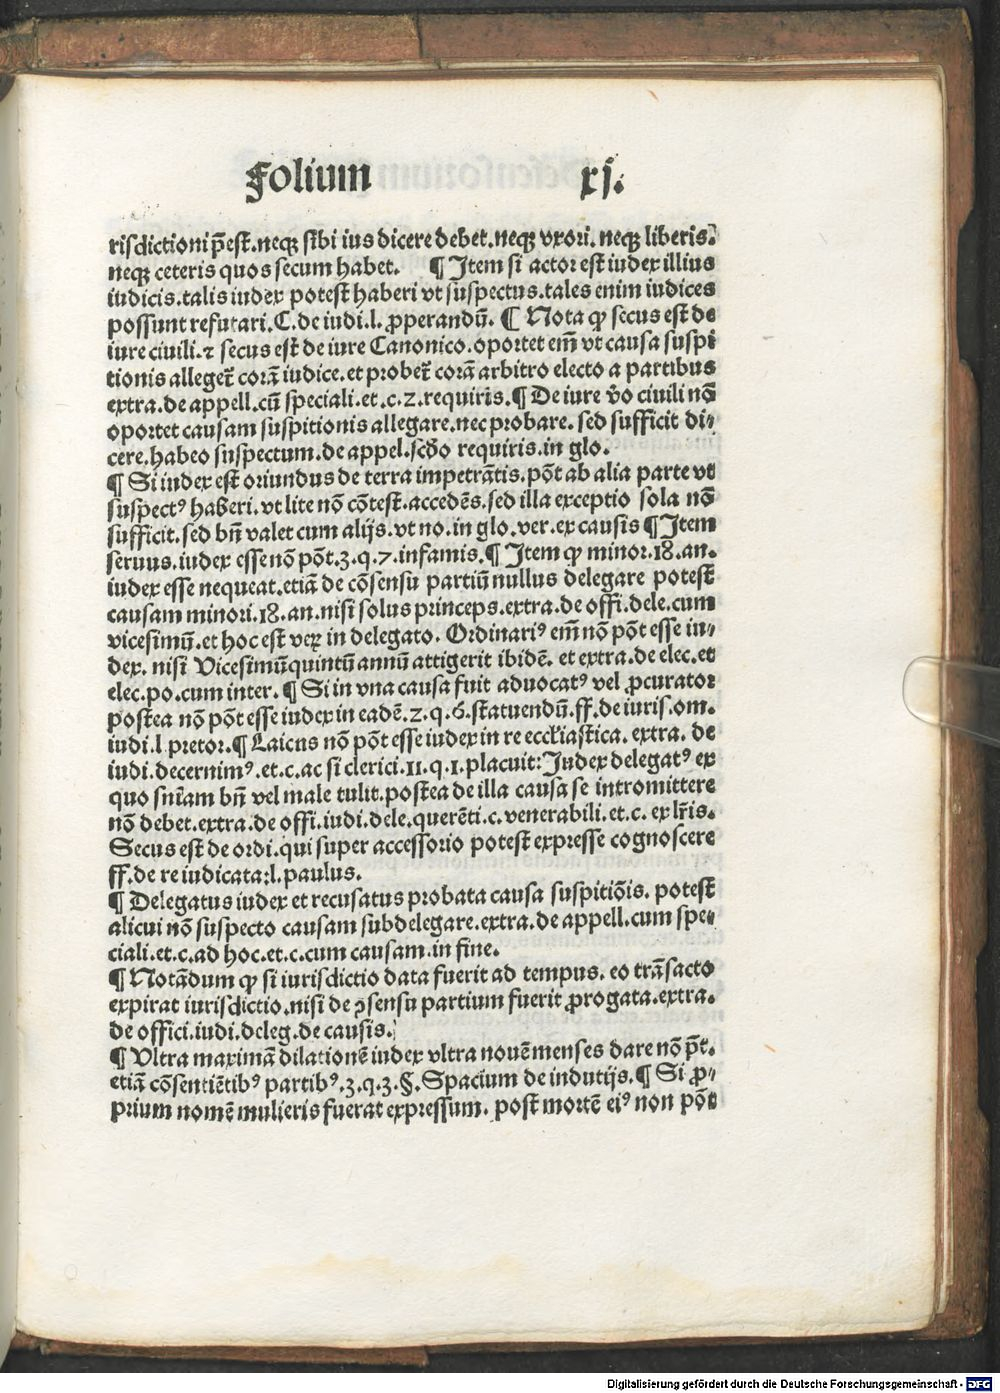 Folium xj.
risdictioni p̄est. neqꝫ sibi ius dicere debet. neqꝫ vxori. neqꝫ liberis.
neqꝫ ceteris quos secum habet. ¶ Item si actor est iudex illius
iudicis. talis iudex potest haberi vt suspectus. tales enim iudices
possunt refutari. C. de iudi. l. ꝓperandū. ¶ Nota ꝙ secus est de
iure ciuili. ⁊ secus est de iure Canonico. oportet em̄ vt causa suspi
tionis alleget̄ corā iudice. et probet̄ corā arbitro electo a partibus
extra. de appell. cū speciali. et. c. 2. requiris. ¶ De iure v̄o ciuili nō
oportet causam suspitionis allegare. nec probare. sed sufficit di⸗
cere. habeo suspectum. de appel. sc̄do requiris. in glo.
¶ Si iudex est oriundus de terra impetrātis. pōt ab alia parte vt
suspectꝰ haberi. vt lite nō cōtest. accedēs. sed illa exceptio sola nō
sufficit. sed bn̄ valet cum alijs. vt no. in glo. ver. ex causis ¶ Item
seruus. iudex esse nō pōt. 3. q. 7. infamis. ¶ Item ꝙ minor. 18. an.
iudex esse nequeat. etiā de cōsensu partiū nullus delegare potest
causam minori. 18. an. nisi solus princeps. extra. de offi. dele. cum
vicesimū. et hoc est veꝝ in delegato. Ordinariꝰ em̄ nō pōt esse iu⸗
dex. nisi Vicesimūquintū annū attigerit ibidē. et extra. de elec. et
elec. po. cum inter. ¶ Si in vna causa fuit aduocatꝰ vel ꝓcurator
postea nō pōt esse iudex in eadē. 2. q. 6. statuendū. ff. de iuris. om.
iudi. l pretor. ¶ Laicus nō pōt esse iudex in re eccl̄iastica. extra. de
iudi. decernimꝰ. et. c. ac si clerici. 11. q. 1. placuit: Iudex delegatꝰ ex
quo sn̄iam bn̄ vel male tulit. postea de illa causa se intromittere
nō debet. extra. de offi. iudi. dele. querēti. c. venerabili. et. c. ex lr̄is.
Secus est de ordi. qui super accessorio potest expresse cognoscere
ff. de re iudicata: l. paulus.
¶ Delegatus iudex et recusatus probata causa suspitiōis. potest
alicui nō suspecto causam subdelegare. extra. de appell. cum spe⸗
ciali. et. c. ad hoc. et. c. cum causam. in fine.
¶ Notādum ꝙ si iurisdictio data fuerit ad tempus. eo trāsacto
expirat iurisdictio. nisi de ꝯsensu partium fuerit ꝓrogata. extra.
de offici. iudi. deleg. de causis.
¶ Vltra maximā dilationē iudex vltra nouē menses dare nō p̄t.
etiā cōsentiētibꝰ partibꝰ. 3. q. 3. §. Spacium de indutijs. ¶ Si ꝓ⸗
prium nomē mulieris fuerat expressum. post mortē eiꝰ non pōt
Digitalisierung gefördert durch die Deutsche Forschungsgemeinschaft - DFG